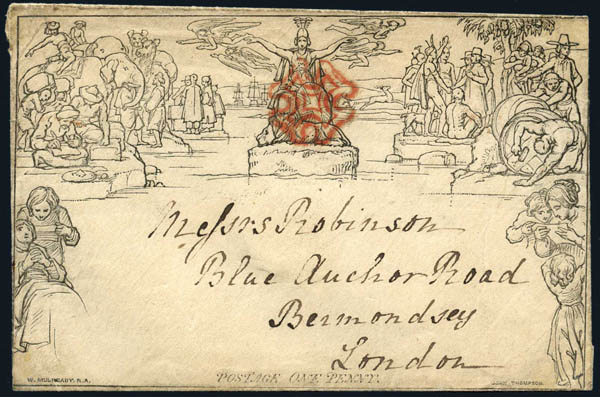 Messrs Robinson
Blue Anchor Road
Bermondsey
London
POSTAGE ONE PENNY.
W. MULREADY. R.A.
JOHN THOMPSON